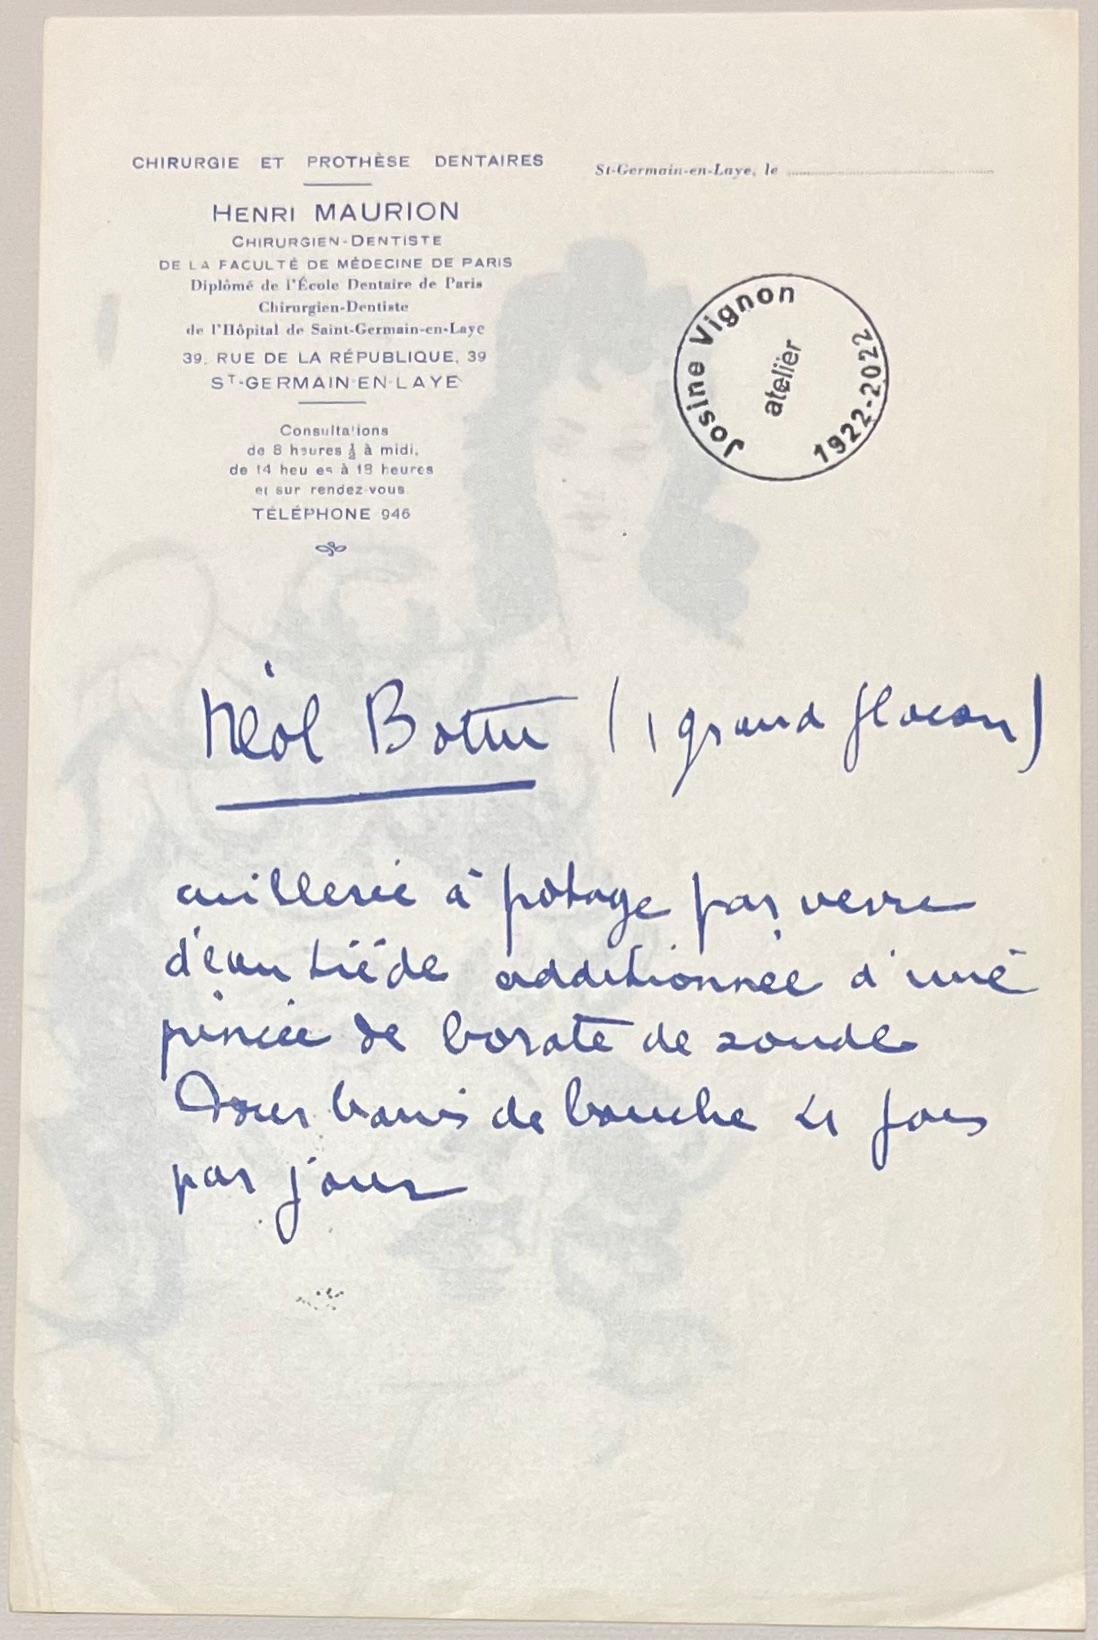 CHIRURGIE ET PROTHÈSE DENTAIRES
St-Germain-en-Laye, le
HENRI MAURION
CHIRURGIEN-DENTISTE
DE LA FACULTÉ DE MÉDECINE DE PARIS
Diplômé de l'École Dentaire de Paris
Chirurgien-Dentiste
de l'Hôpital de Saint-Germain-en-Laye
39, RUE DE LA RÉPUBLIQUE, 39
ST-GERMAIN-EN-LAYE
Consultations
de 8 heures ½ à midi,
de 14 heures à 19 heures
et sur rendez-vous
TÉLÉPHONE 946
Josine Vignon
atelier
1922-2022
Néol Bottu (1 grand flacon)
cuillerée à potage par verre
d'eau tiède additionnée d'une
pincée de borate de soude
Pour bains de bouche 4 fois
par jour